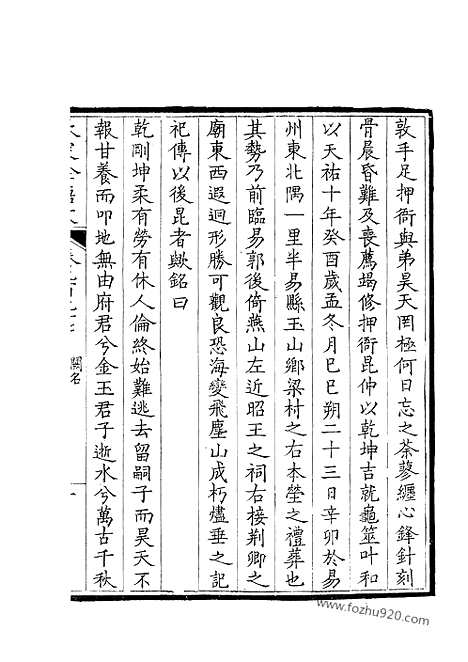 敦手足押衙與弟昊天罔極何日忘之荼蓼纏心鋒針刻
骨晨昏難及喪薦竭修押衙昆仲以乾坤吉就龜筮叶和
以天祐十年癸酉歲孟冬月巳巳朔二十三日辛卯於易
州東北隅一里半易縣玉山鄉梁村之右本塋之禮葬也
其勢乃前臨易郭後倚燕山左近昭王之祠右接荆卿之
廟東西遐迴形勝可觀良恐海變飛塵山成朽燼垂之記
祀傳以後昆者歟銘曰
乾剛坤柔有勞有休人倫終始難逃去留嗣子而昊天不
報甘養而叩地無由府君兮金玉君子逝水兮萬古千秋
闕名
一
www.fozhu920.com